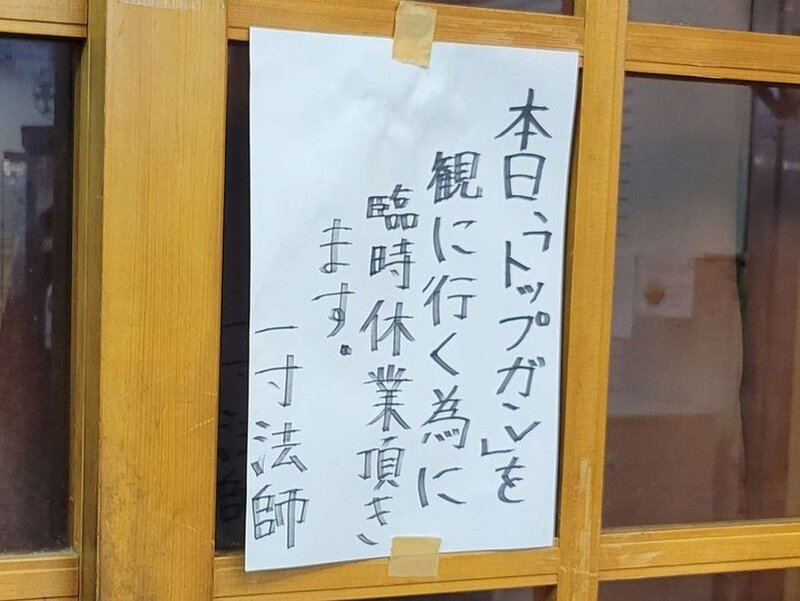 本日、「トップガン」を
観に行く為に
臨時休業頂き
ます。
一寸法師